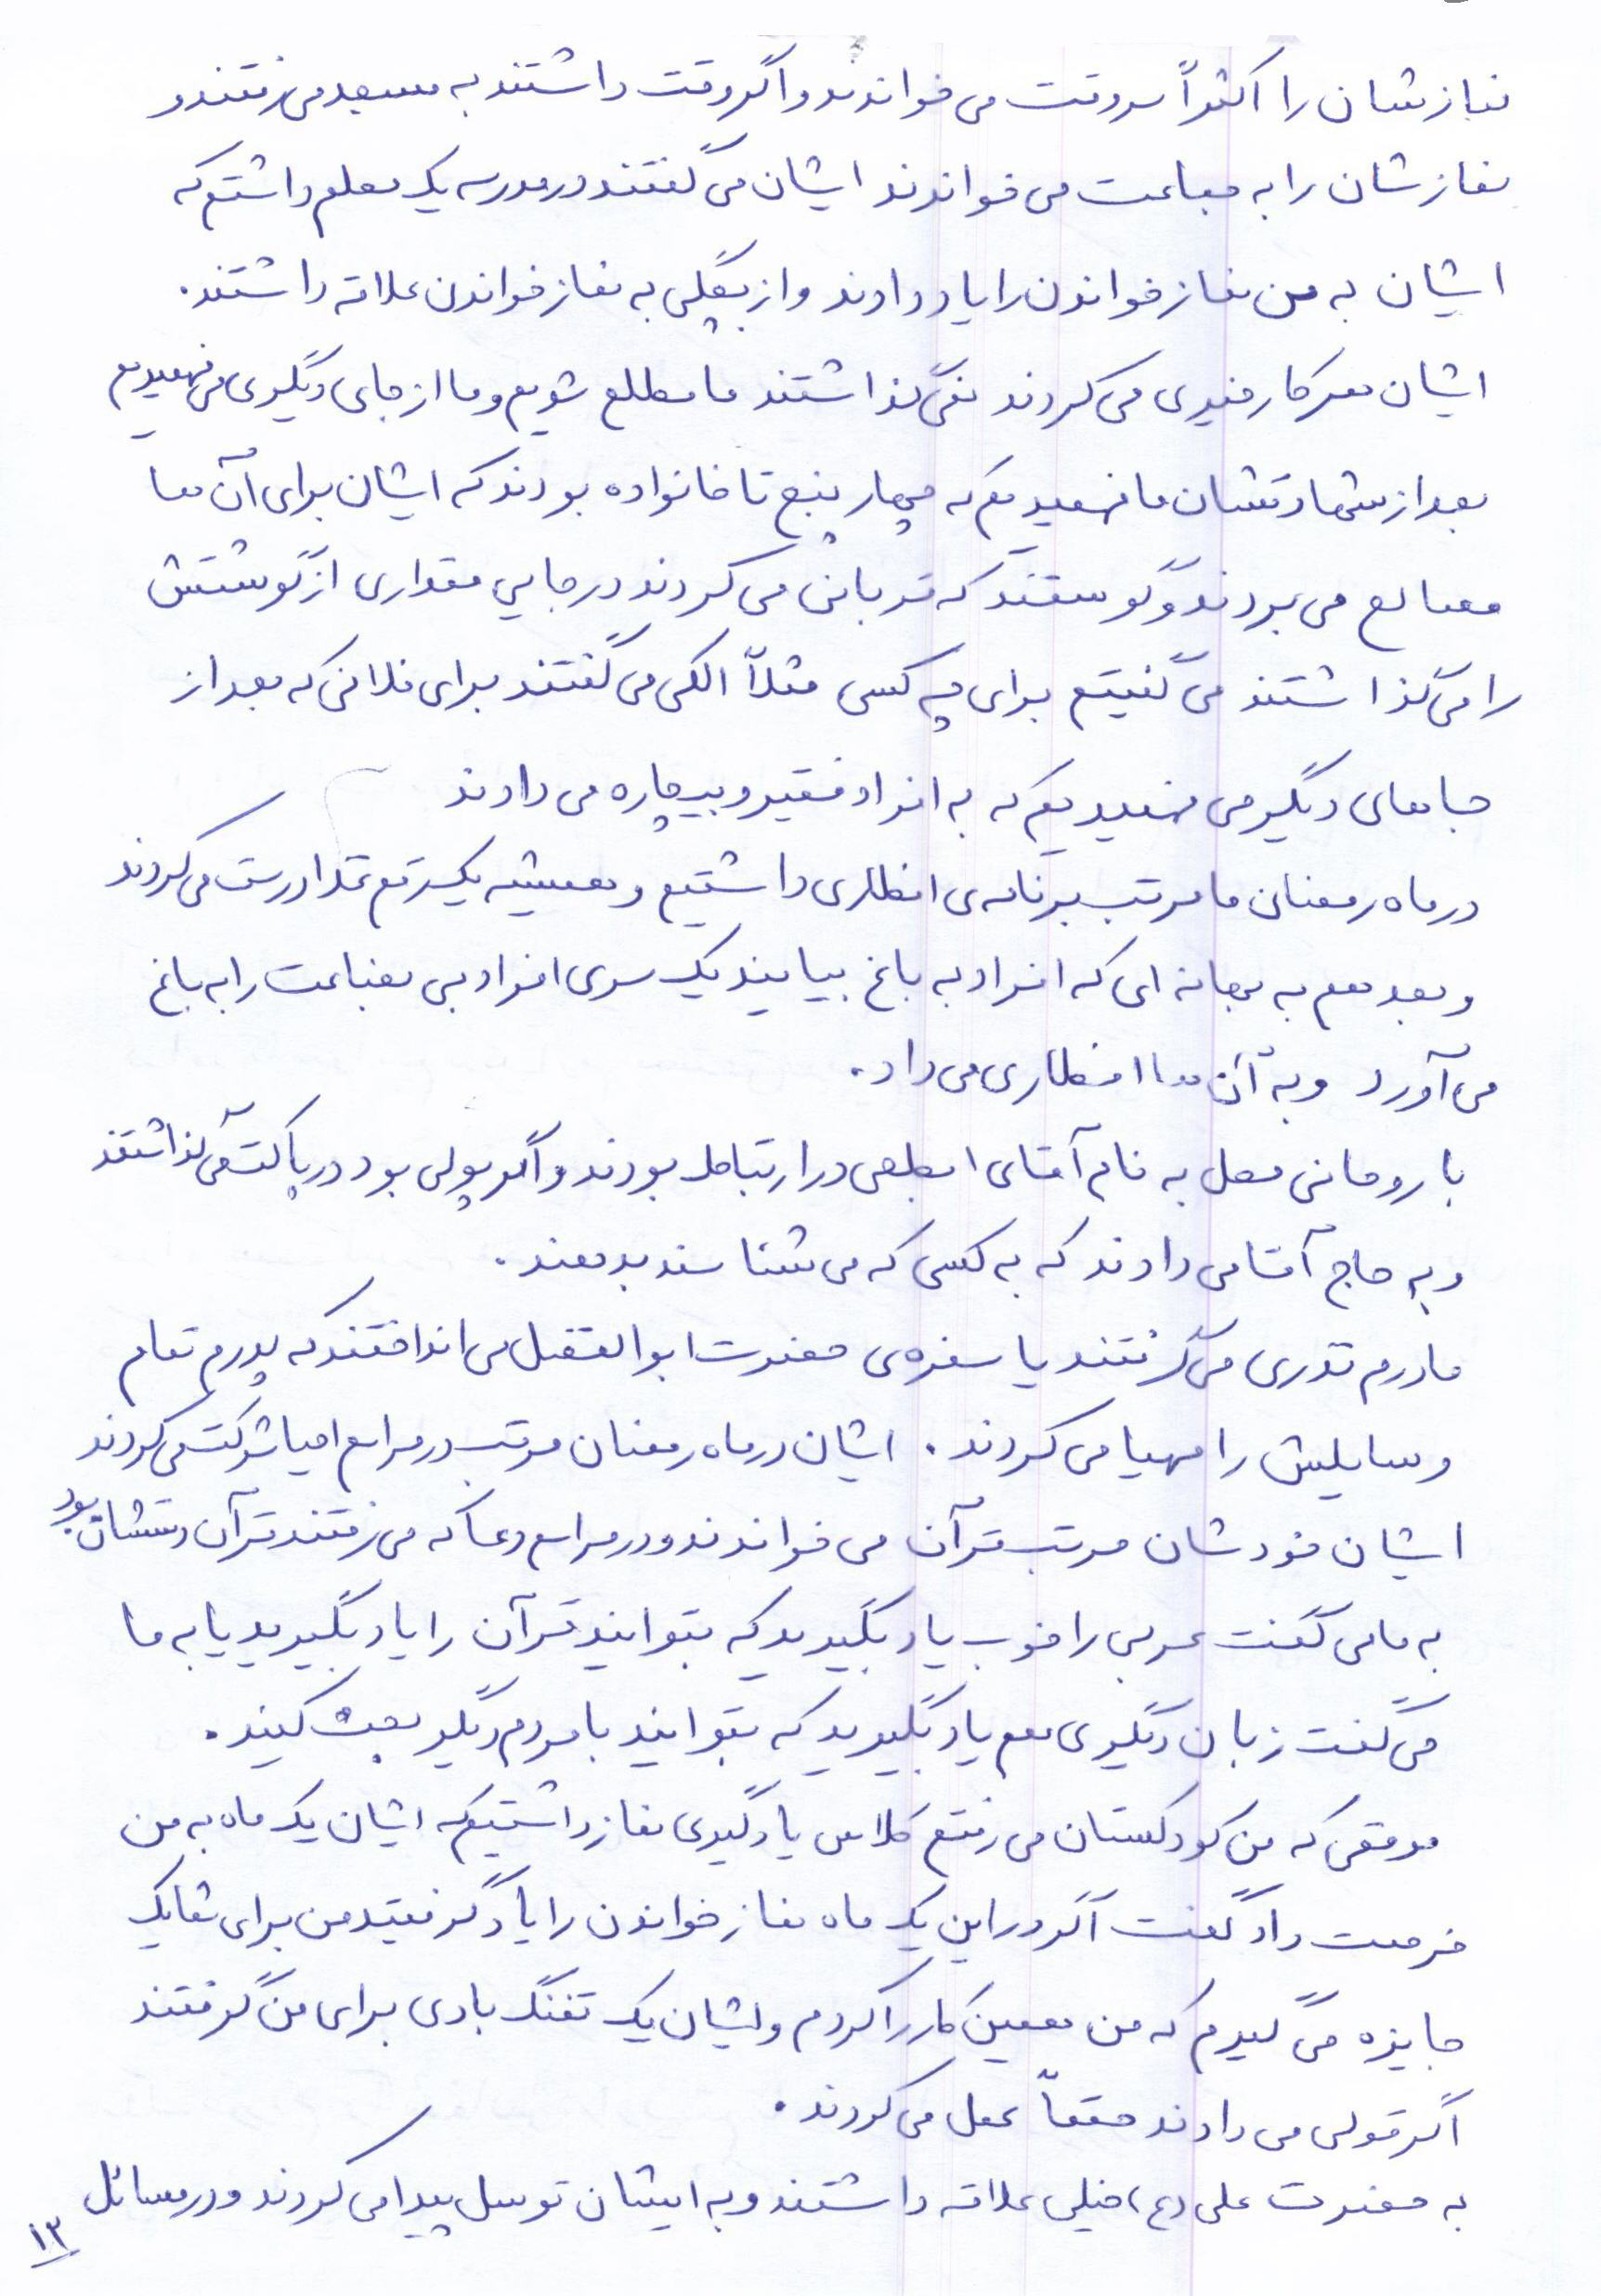 نمازشان را اکثراً سروقت می خواندند و اگر وقت داشتند به مسجد می رفتند و
نمازشان را به جماعت می خواندند ایشان می گفتند در مدرسه یک معلم داشتم که
ایشان به من نماز خواندن را یاد دادند و از بچگی به نماز خواندن علاقه داشتند.
ایشان هر کار خیری می کردند نمی گذاشتند ما مطلع شویم و ما از جای دیگری می فهمیدیم
بعد از شهادتشان ما فهمیدیم که چهار پنج تا خانواده بودند که ایشان برای آن ها
مصالح می بردند و گوسفند که قربانی می کردند در جایی مقداری از گوشتش
را می گذاشتند می گفتیم برای چه کسی مثلاً الکی می گفتند برای فلانی که بعد از
جاهای دیگر می فهمیدیم که به افراد فقیر و بیچاره می دادند
در ماه رمضان ما مرتب برنامه ی افطاری داشتیم و همیشه یک رقم غذا درست می کردند
و بعد هم به بهانه ای که افراد به باغ بیایند یک سری افراد بی بضاعت را به باغ
می آورد و به آن ها افطاری می داد.
با روحانی محل به نام آقای ابطحی در ارتباط بودند و اگر پولی بود در پاکت می گذاشتند
و به حاج آقا می دادند که به کسی که می شناسند بدهند.
مادرم نذری می گرفتند یا سفره ی حضرت ابوالفضل می انداختند که پدرم تمام
وسایلش را مهیا می کردند. ایشان در ماه رمضان مرتب در مراسم احیا شرکت می کردند
ایشان خودشان مرتب قرآن می خواندند و در مراسم دعا که می رفتند قرآن دستشان بود
به ما می گفت عربی را خوب یاد بگیرید که بتوانید قرآن را یاد بگیرید یا به ما
می گفت زبان دیگری هم یاد بگیرید که بتوانید با مردم دیگر بحث کنید.
موقعی که من کودکستان می رفتم کلاس یادگیری نماز داشتیم که ایشان یک ماه به من
فرصت داد گفت اگر در این یک ماه نماز خواندن را یاد گرفتید من برای شما یک
جایزه می گیرم که من همین کار را کردم و ایشان یک تفنگ بادی برای من گرفتند
اگر قولی می دادند حتماً عمل می کردند.
به حضرت علی (ع) خیلی علاقه داشتند و به ایشان توسل پیدا می کردند و در مسائل
۱۳